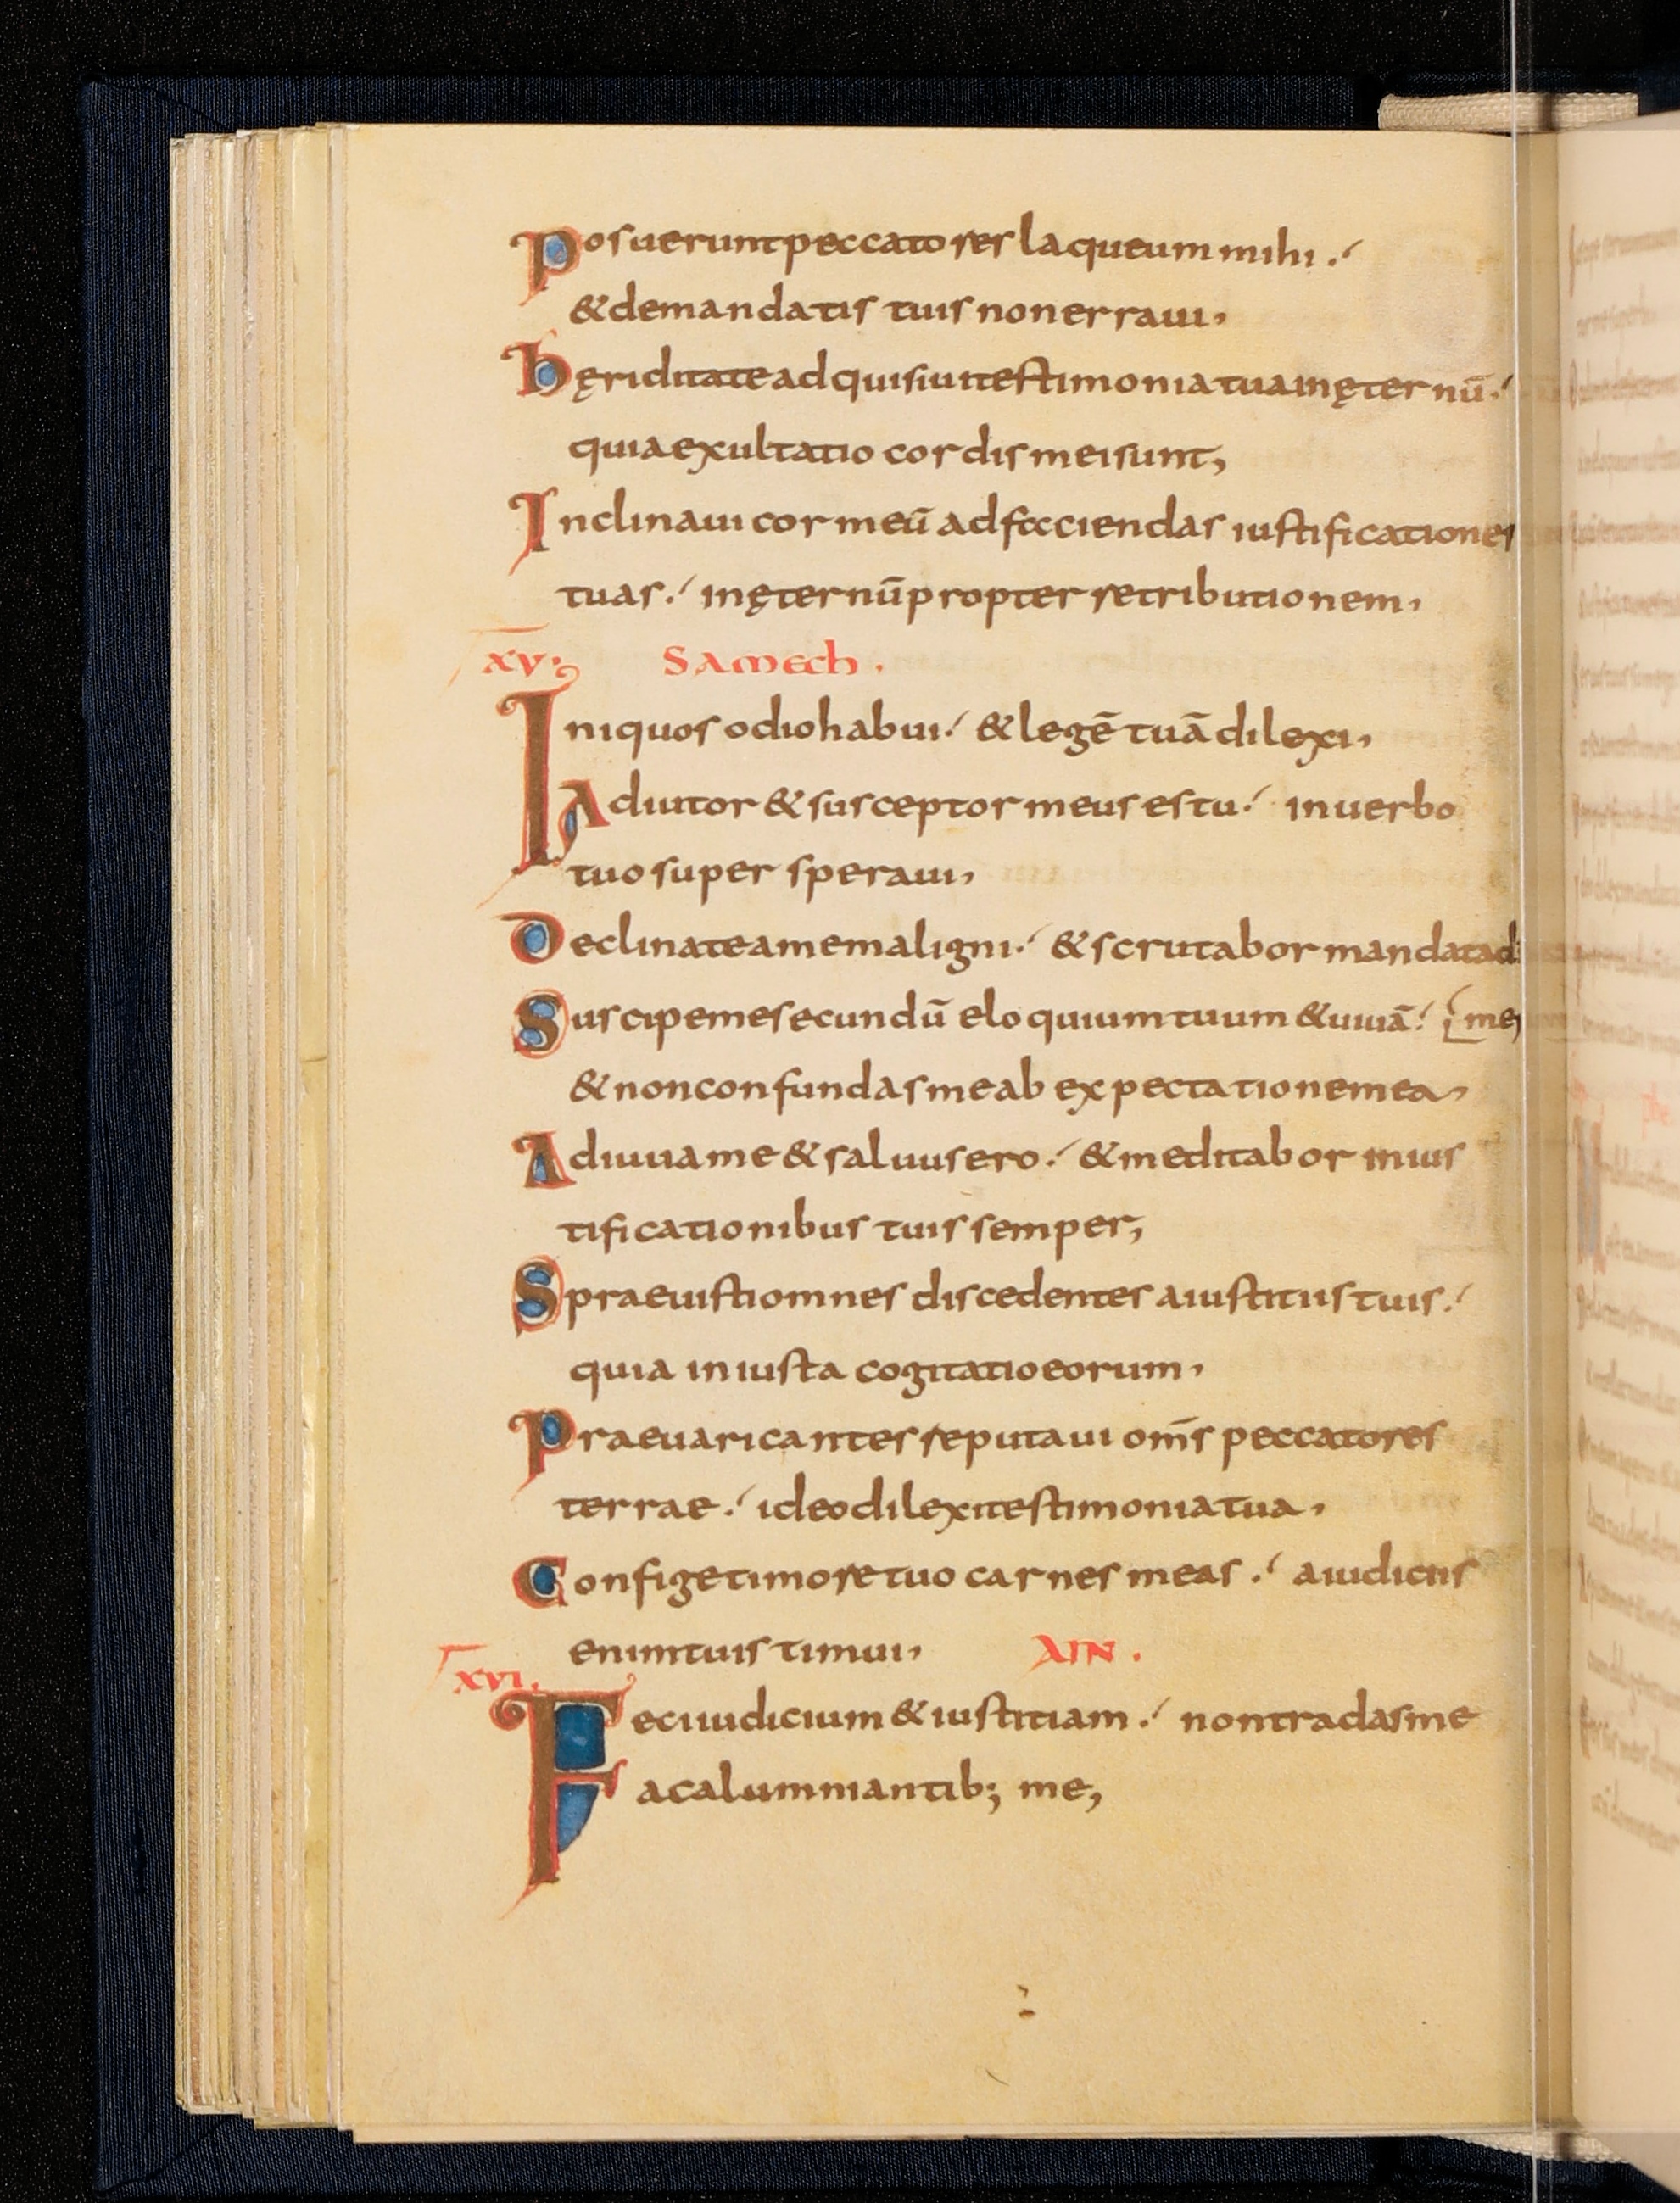 Posuerunt peccatores laqueum mihi ./
& demandatis tuis non erraui,
Hęriditate adquisiui testimonia tua inęternū ./
quia exultatio cordis mei sunt,
Inclinaui cor meū ad facciendas iustificationes
tuas ./ inęternū propter retributionem,
XV. SAMECH .
Iniquos odio habui ./ & legē tuā dilexi,
Adiutor & susceptor meus es tu ./ in uerbo
tuo super speraui,
Declinate a me maligni ./ & scrutabor mandata di
Suscipe me secundū eloquium tuum & uiuā ./ [mei,
& non confundas me ab expectatione mea,
Adiuua me & saluus ero ./ & meditabor in ius
tificationibus tuis semper,
Spraeuisti omnes discedentes a iustitiis tuis ./
quia iniusta cogitatio eorum,
Praeuaricantes reputaui om̄s peccatores
terrae ./ ideo dilexi testimonia tua,
Confige timore tuo carnes meas ./ a iudiciis
enim tuis timui, AIN .
XVI.
Feci iudicium & iustitiam ./ non tradas me
a calumniantib; me,